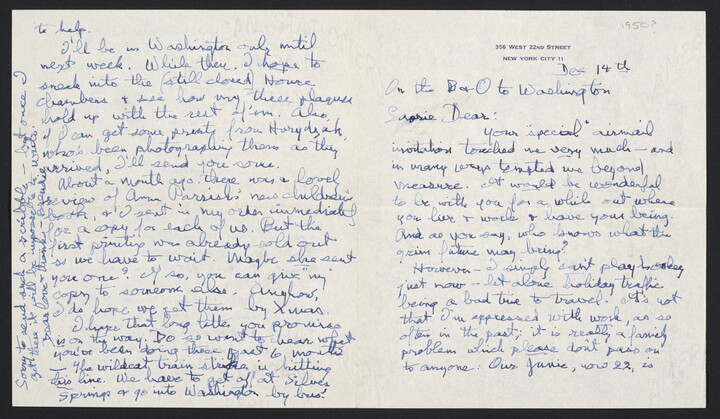 1950?
356 WEST 22ND STREET
NEW YORK CITY 11
Dec 14th
On the B&O to Washington
Dear:
Your "special" airmail
invitation touched me very much – and
in many ways tempted me beyond
measure. It would be wonderful
to be with you for a while out where
you live & work & have your being.
And as you say, who knows what the
grim future may bring?
However – I simply can't play hookey
just now – let alone holiday traffic
being a bad time to travel. It's not
that I'm oppressed with work, as so
often in the past; it is really a family
problem which please don't pass on
to anyone: Our Junie, now 22, is
to help.
I'll be in Washington only until
next week. While there, I hope to
sneak into the (still closed) House
chambers & see how my three plaques
hold up with the rest of 'em. Also,
if I can get some prints from Horydczak,
who's been photographing them as they
arrived, I'll send you some.
About a month ago there was a
review of Ann Parrish's new children's
book, & I sent in my order immediately
for a copy for each of us. But the
first printing was already sold out
so we have to wait. Maybe she sent
you one? If so, you can give my
copy to someone else. Anyhow,
I do hope we get them by Xmas.
I hope that long letter you promise
is on the way. Do so want to hear what
you've been doing these past 6 months
– The wildcat train strike is hitting
this line. We have to get off at Silver
Springs & go into Washington by bus!
Sorry to send such a scribble – but once I
get there it will be impossible to write.